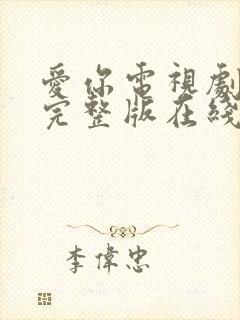 愛你電視劇
完整版在綫
李偉忠